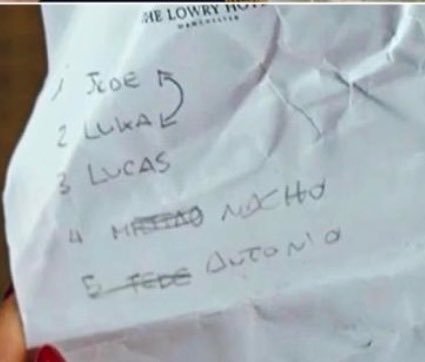 THE LOWRY HO
MANCHESTER
1 JEDE
2 LUKA
3 LUCAS
4 NACHO
5 JEDE ANTONIO